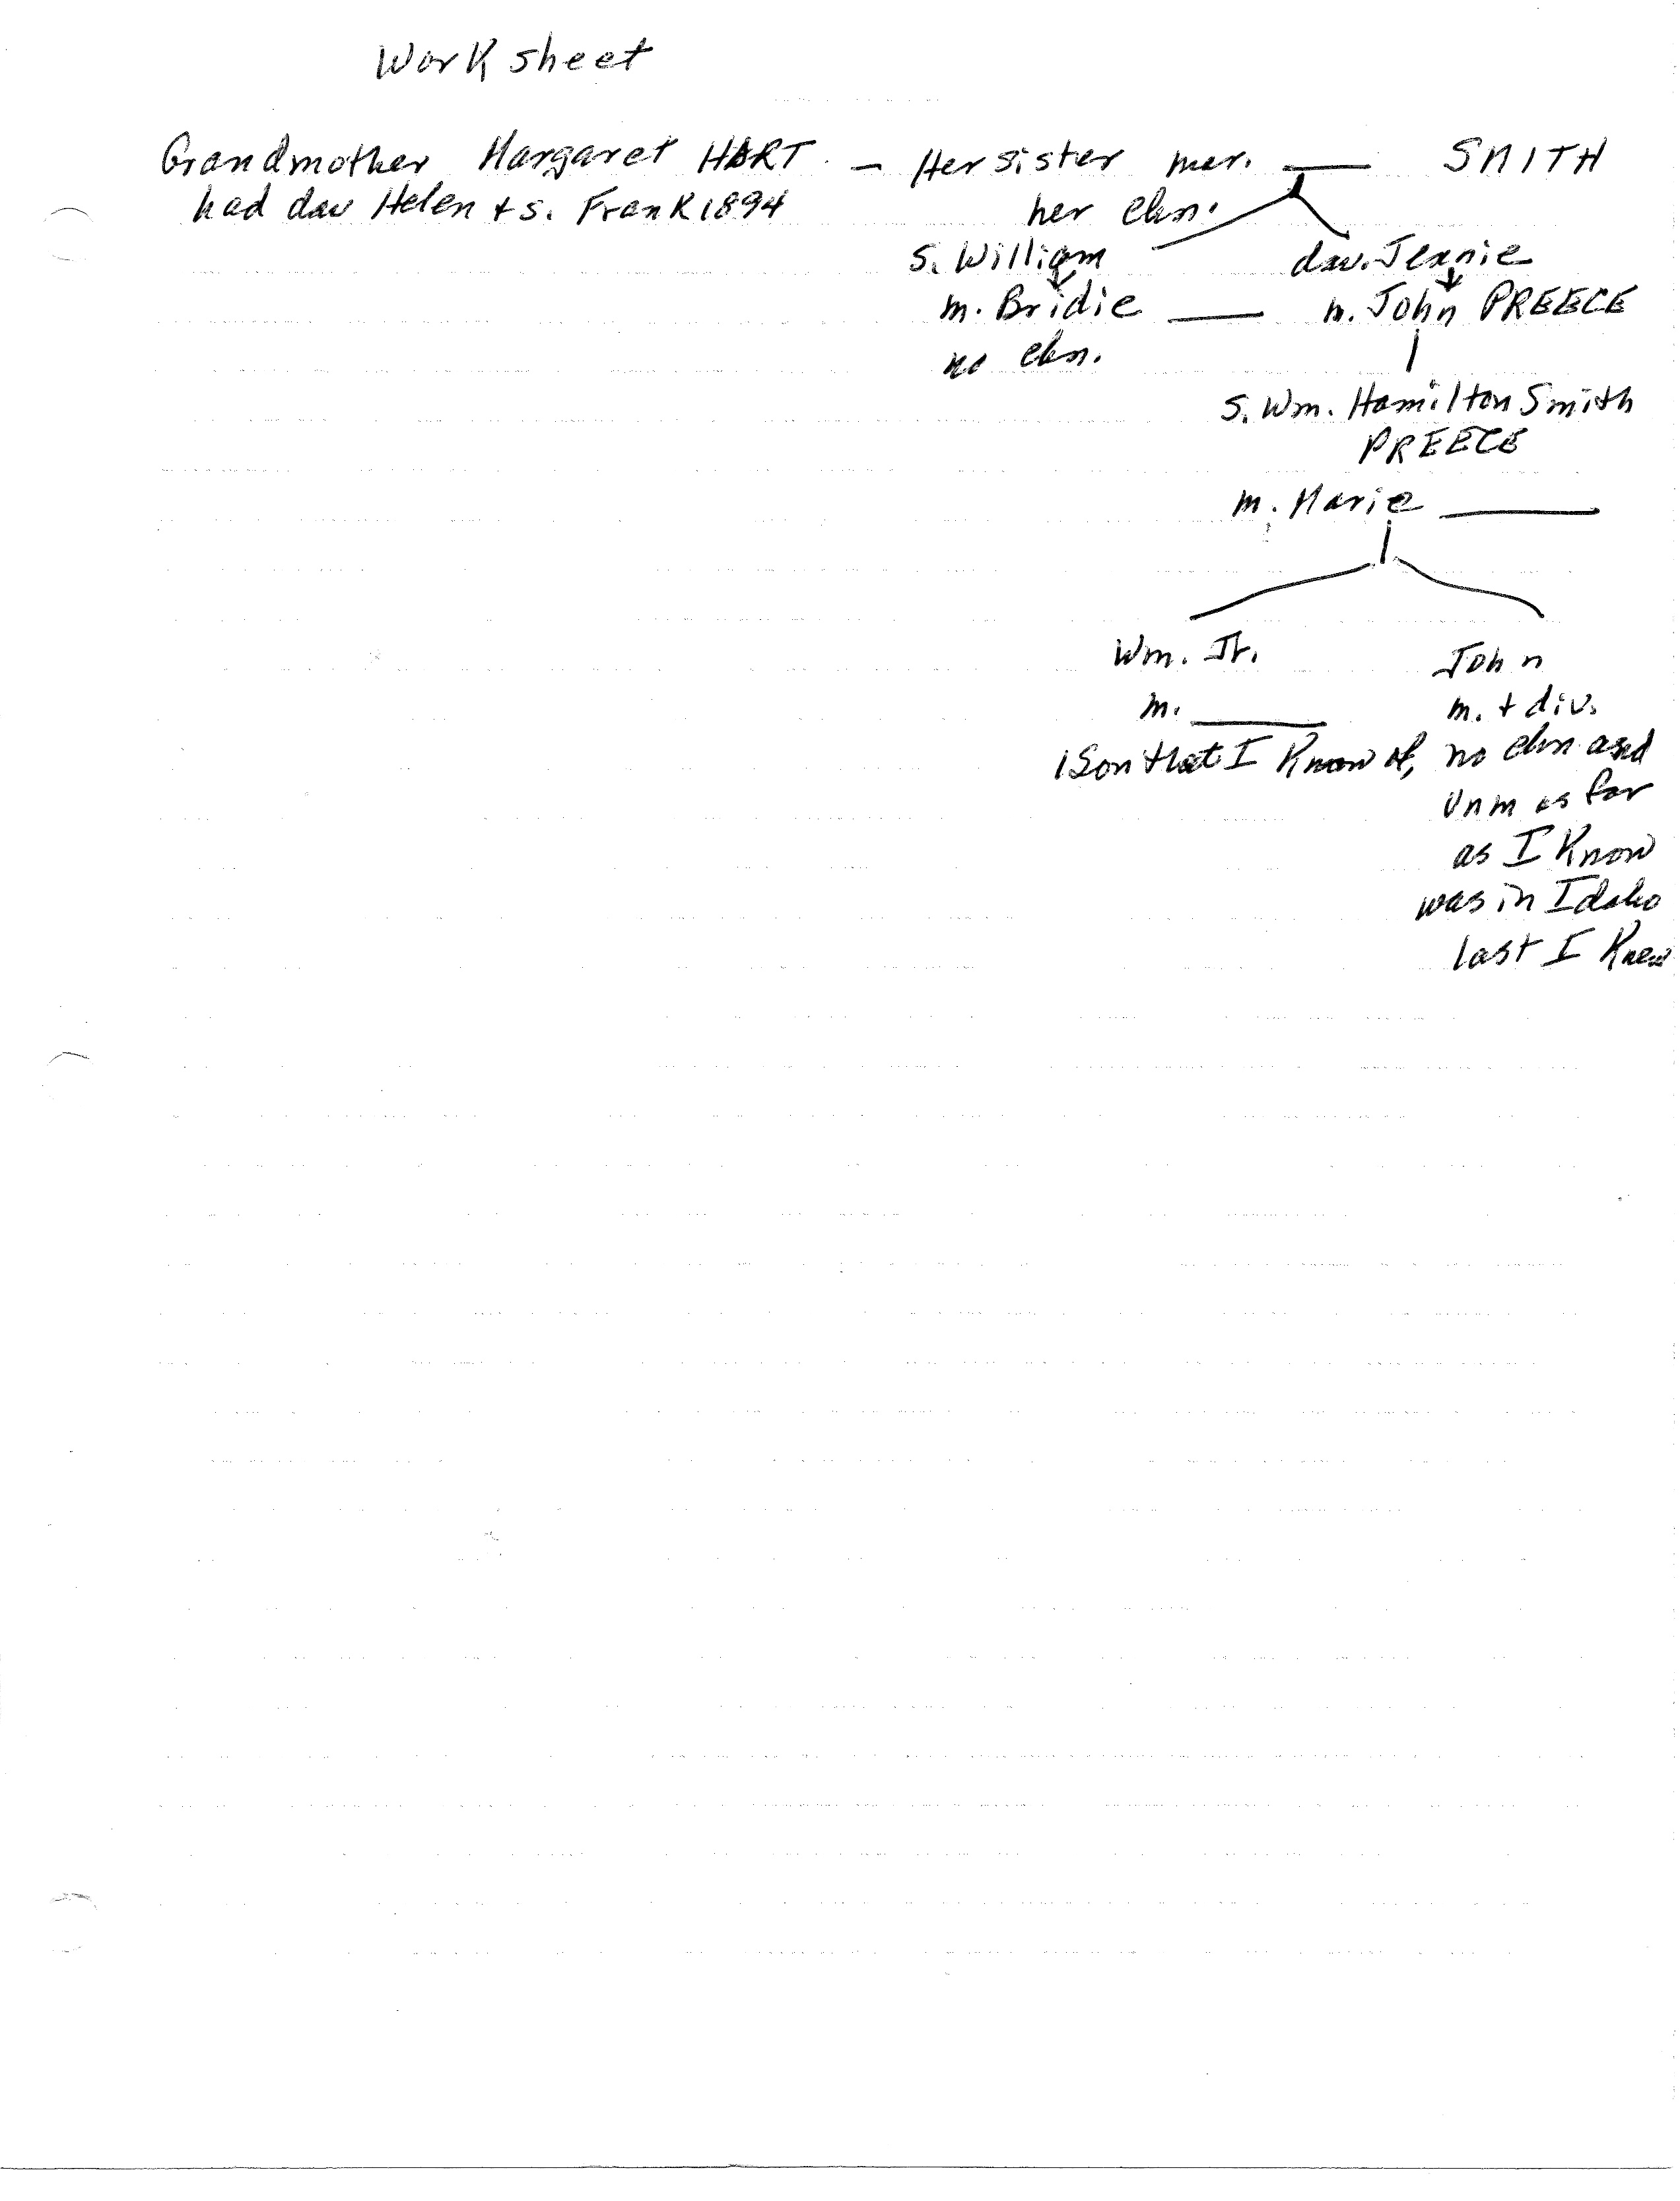 Work sheet
Grandmother Margaret HART - Her sister mar. ____ SMITH
had dau Helen + s. Frank 1894
her chn.
s. William
dau. Jennie
m. Bridie ____
m. John PREECE
no chn.
s. Wm. Hamilton Smith
PREECE
m. Marie ____
Wm. Jr.
m. ____
1 Son that I Know of,
John
m. + div.
no chn and
Unm as far
as I Know
was in Idaho
last I Knew